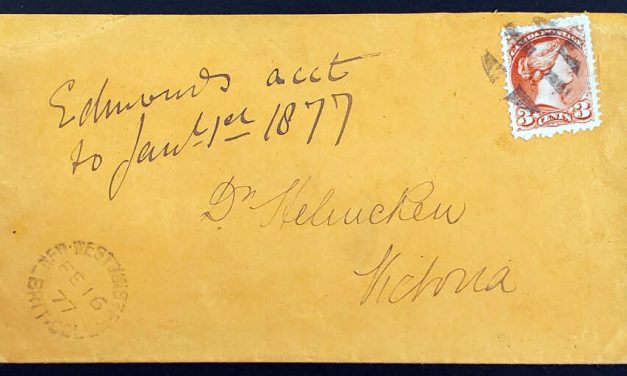 CANADA POSTAGE
3 CENTS 3
Edmonds acct
to Jany 1st 1877
Dr Helmcken
Victoria
NEW-WESTMINSTER
FE 16
77
BRIT-COL